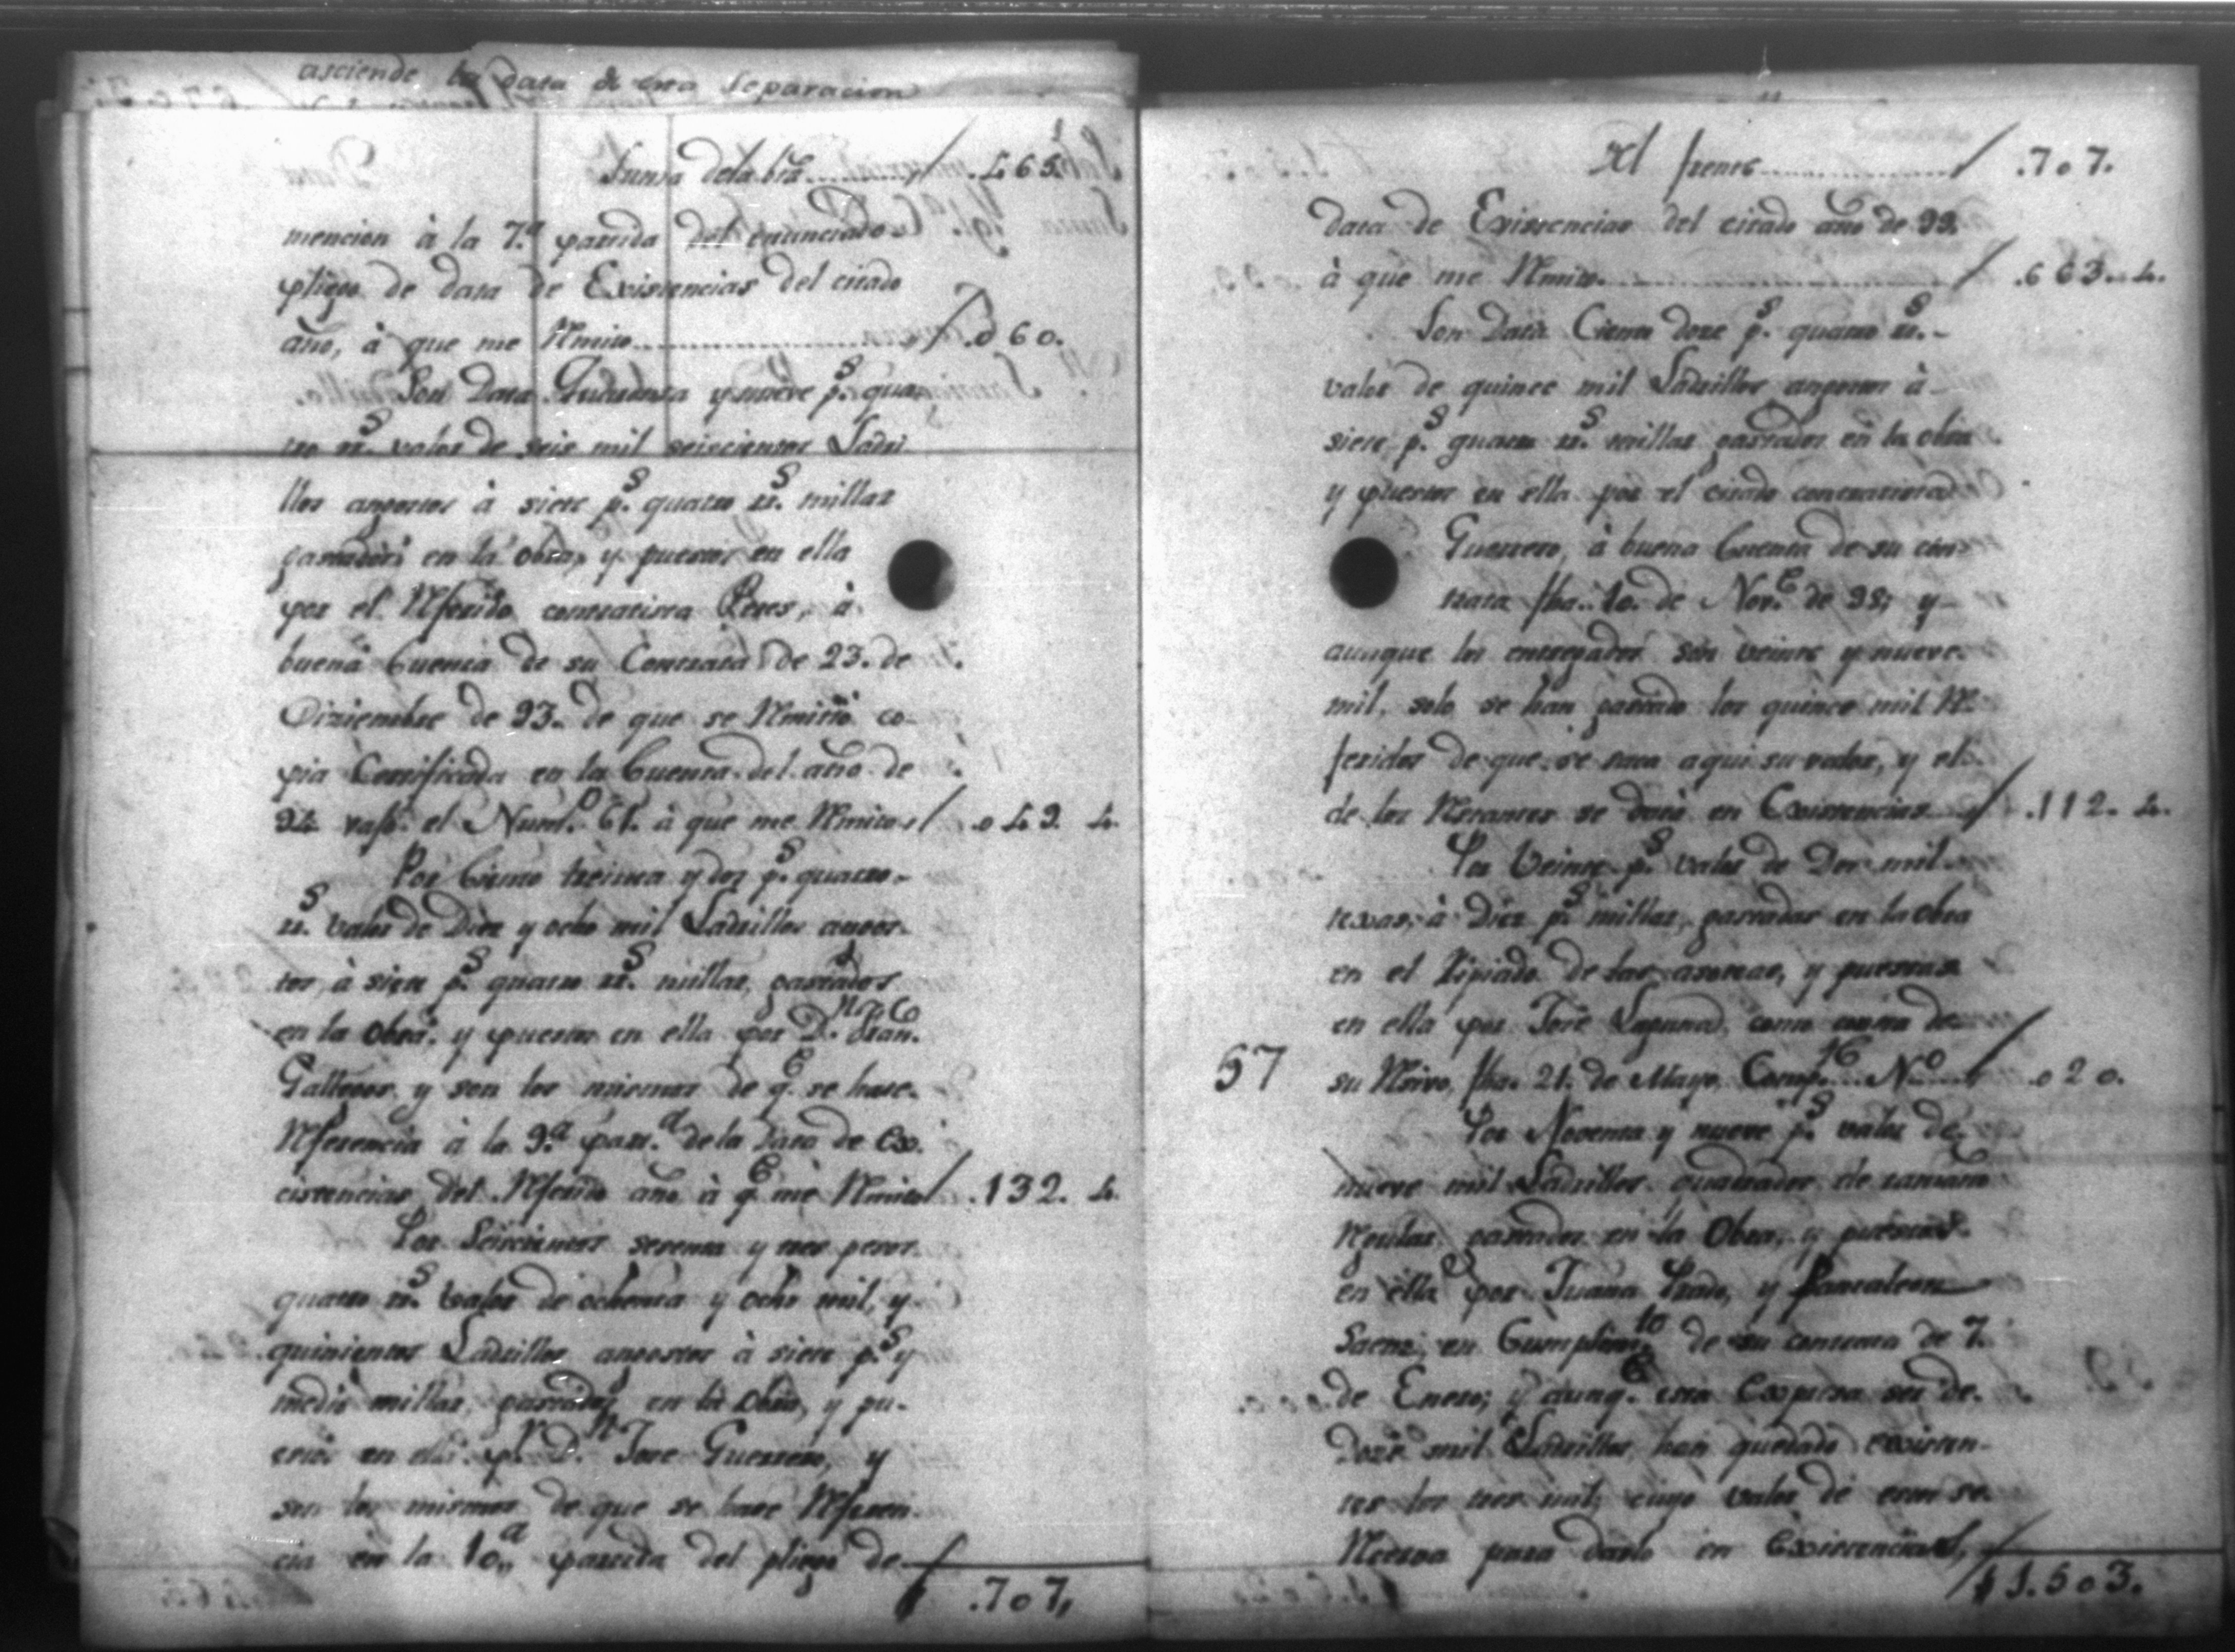 asciende la data de esta separacion
Suma dela bta........ / .465.
mencion à la 7.ª partida del enunciado
pliego de data de Existencias del citado
año, à que me Rmito.................. / .o60.
Son Data Quarenta y nueve p.s qua
tro rr.s valor de seis mil seiscientos Ladri
llos angostos à siete p.s quatro rr.s millar
gastados en la obra, y puestos en ella
por el Rferido contratista Peres, à
buena Cuenta de su Contrata de 23. de
Diziembre de 93. de que se Rmitió co-
pia Certificada en la Cuenta del año de
94 vajo el Num.o 61. à que me Rmito / .o49. 4.
Por Ciento treinta y dos p.s quatro
rr.s valor de Diez y ocho mil Ladrillos angos-
tos, à siete p.s quatro rr.s millar, gastados
en la obra, y puestos en ella por D.n Fran.co
Gallegos, y son los mismos de q.e se hace
Rferencia à la 9.ª part.ª de la data de Ex-
cistencias del Rferido año à q.e me Rmito / .132. 4.
Por Seiscientos sesenta y tres pesos
quatro rr.s valor de ochenta y ocho mil, y
quinientos Ladrillos angostos à siete p.s y
medio millar, gastados en la obra, y pu-
estos en ella p.r D.n Jose Guerrero, y
son los mismos de que se hace Rferen-
cia en la 10.ª partida del pliego de
/ .707,
Al frente.................. / .707.
data de Existencias del citado año de 99.
à que me Rmito.................. / .663. 4.
Son Data Ciento doze p.s quatro rr.s
valor de quince mil Ladrillos angostos à
siete p.s quatro rr.s millar gastados en la obra
y puestos en ella por el citado contratista
Guerrero, à buena Cuenta de su con-
trata fha. 10. de Nov.e de 98; y
aunque los entregados son veinte y nueve
mil, solo se han gastado los quince mil R-
feridos de que se saca aqui su valor, y el
de los Restantes se dará en Existencias / .112. 4.
Por Veinte p.s valor de Dos mil
texas, à Diez p.s millar, gastadas en la obra
en el Ripiado de las asoteas, y puestas
en ella por José Laguna, como consta de
57 su Rcivo, fha. 21. de Mayo, Comp.te N.o / .o20.
Por Noventa y nueve p.s valor de
nueve mil Ladrillos quadrados de tamaño
Rgular, gastados en la Obra, y puestos
en ella por Juana Prado, y Pantaleon
Saenz, en Cumplim.to de su contrata de 7.
de Enero; y aunq.e esta expresa ser de
Doze mil Ladrillos, han quedado existen-
tes los tres mil, cuyo valor de estos se
Rserva para darlo en Existencias,
/ $1.503.